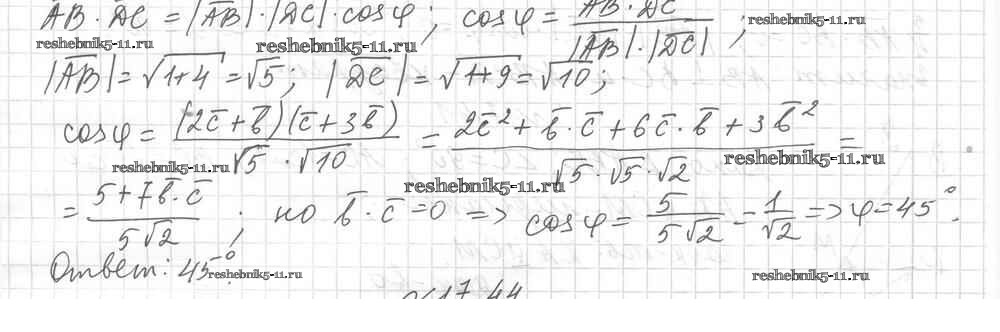 AB · DC = |AB| · |DC| · cos φ ; cos φ = AB · DC / |AB| · |DC| ; reshebnik5-11.ru
reshebnik5-11.ru reshebnik5-11.ru
|AB| = √1+4 = √5 ; |DC| = √1+9 = √10 ;
cos φ = (2c̄ + b̄)(c̄ + 3b̄) / √5 · √10 = 2c̄² + b̄ · c̄ + 6c̄ · b̄ + 3b̄² / √5 · √5 · √2 =
reshebnik5-11.ru reshebnik5-11.ru reshebnik5-11.ru
= 5 + 7b̄ · c̄ / 5√2 ; но b̄ · c̄ = 0 => cos φ = 5 / 5√2 = 1 / √2 => φ = 45°.
Ответ: 45°. reshebnik5-11.ru reshebnik5-11.ru
17.44